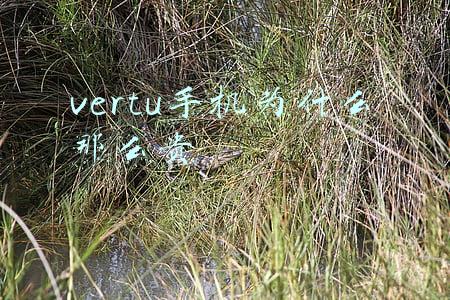 vertu手机为什么
那么贵